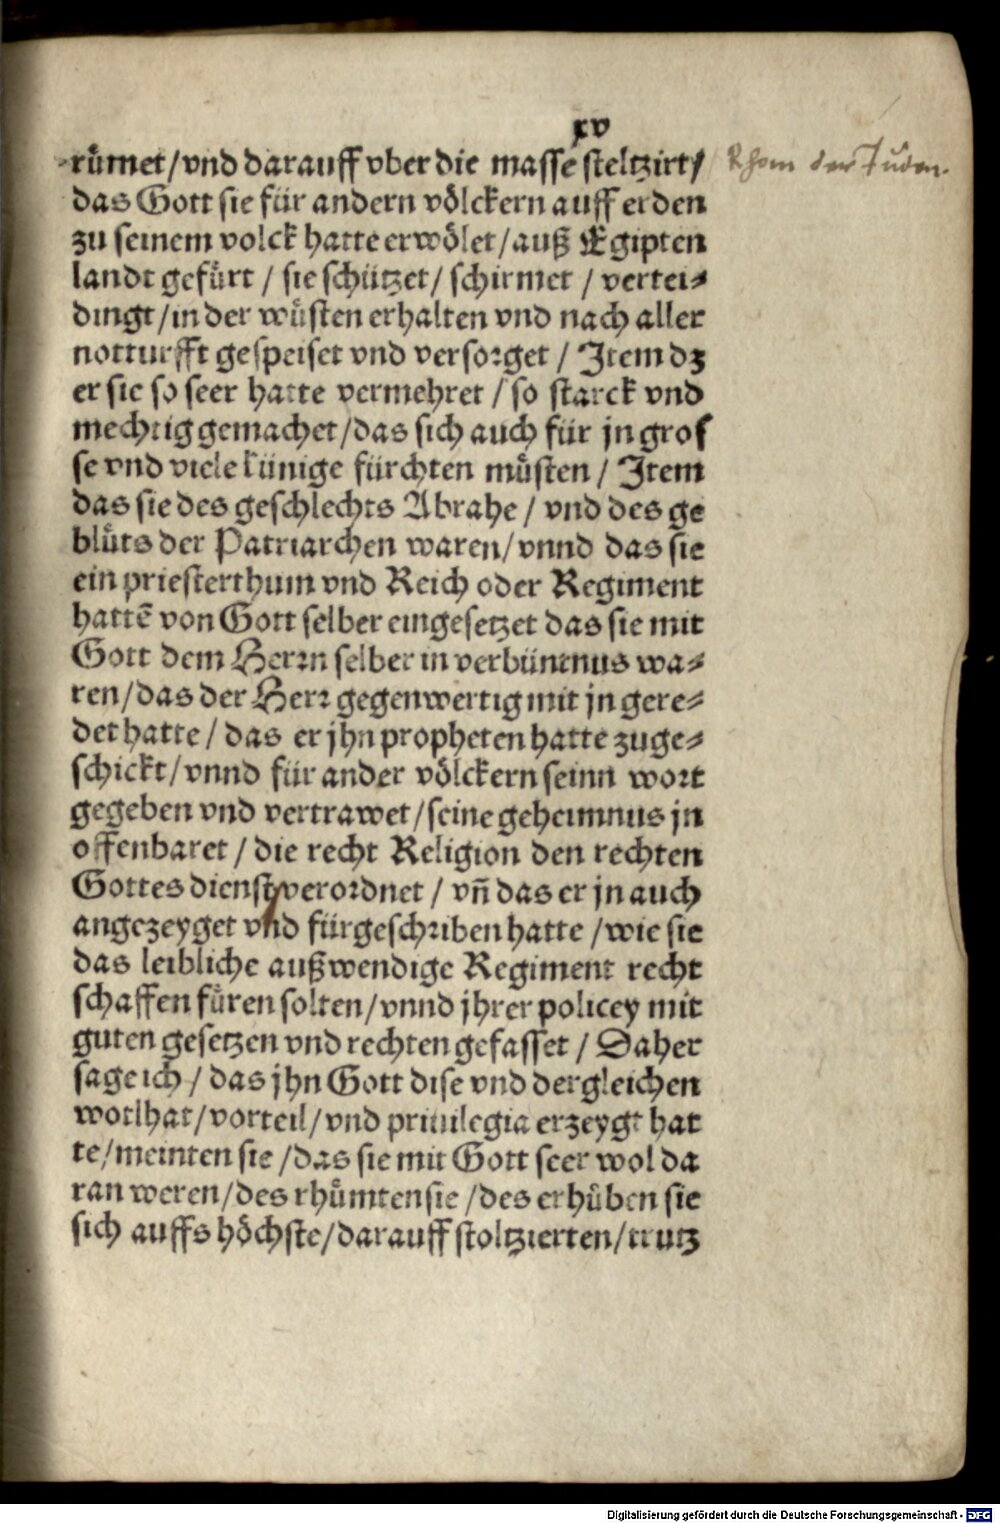 xv
rümet/vnd darauff vber die masse steltzirt/
Rhom der Juden.
das Gott sie für andern völckern auff erden
zu seinem volck hatte erwölet/auß Egipten
landt gefürt / sie schützet/ schirmet / vertei⸗
dingt/in der wüsten erhalten vnd nach aller
notturfft gespeiset vnd versorget / Item dz
er sie so seer hatte vermehret / so starck vnd
mechtig gemachet/das sich auch für jn gros
se vnd viele künige fürchten müsten / Item
das sie des geschlechts Abrahe / vnd des ge
blüts der Patriarchen waren/vnnd das sie
ein priesterthum vnd Reich oder Regiment
hattē von Gott selber eingesetzet das sie mit
Gott dem Herrn selber in verbüntnus wa⸗
ren/das der Herr gegenwertig mit jn gere⸗
det hatte / das er jhn propheten hatte zuge⸗
schickt/vnnd für ander völckern seinn wort
gegeben vnd vertrawet/seine geheimnus jn
offenbaret / die recht Religion den rechten
Gottes dienst verordnet / vn̄ das er jn auch
angezeyget vnd fürgeschriben hatte /wie sie
das leibliche außwendige Regiment recht
schaffen füren solten/vnnd jhrer policey mit
guten gesetzen vnd rechten gefasset / Daher
sage ich / das jhn Gott dise vnd dergleichen
wotlhat/vorteil/vnd priuilegia erzeygt hat
te/meinten sie /das sie mit Gott seer wol da
ran weren/des rhümten sie /des erhüben sie
sich auffs höchste/darauff stoltzierten/trutz
Digitalisierung gefördert durch die Deutsche Forschungsgemeinschaft - DFG